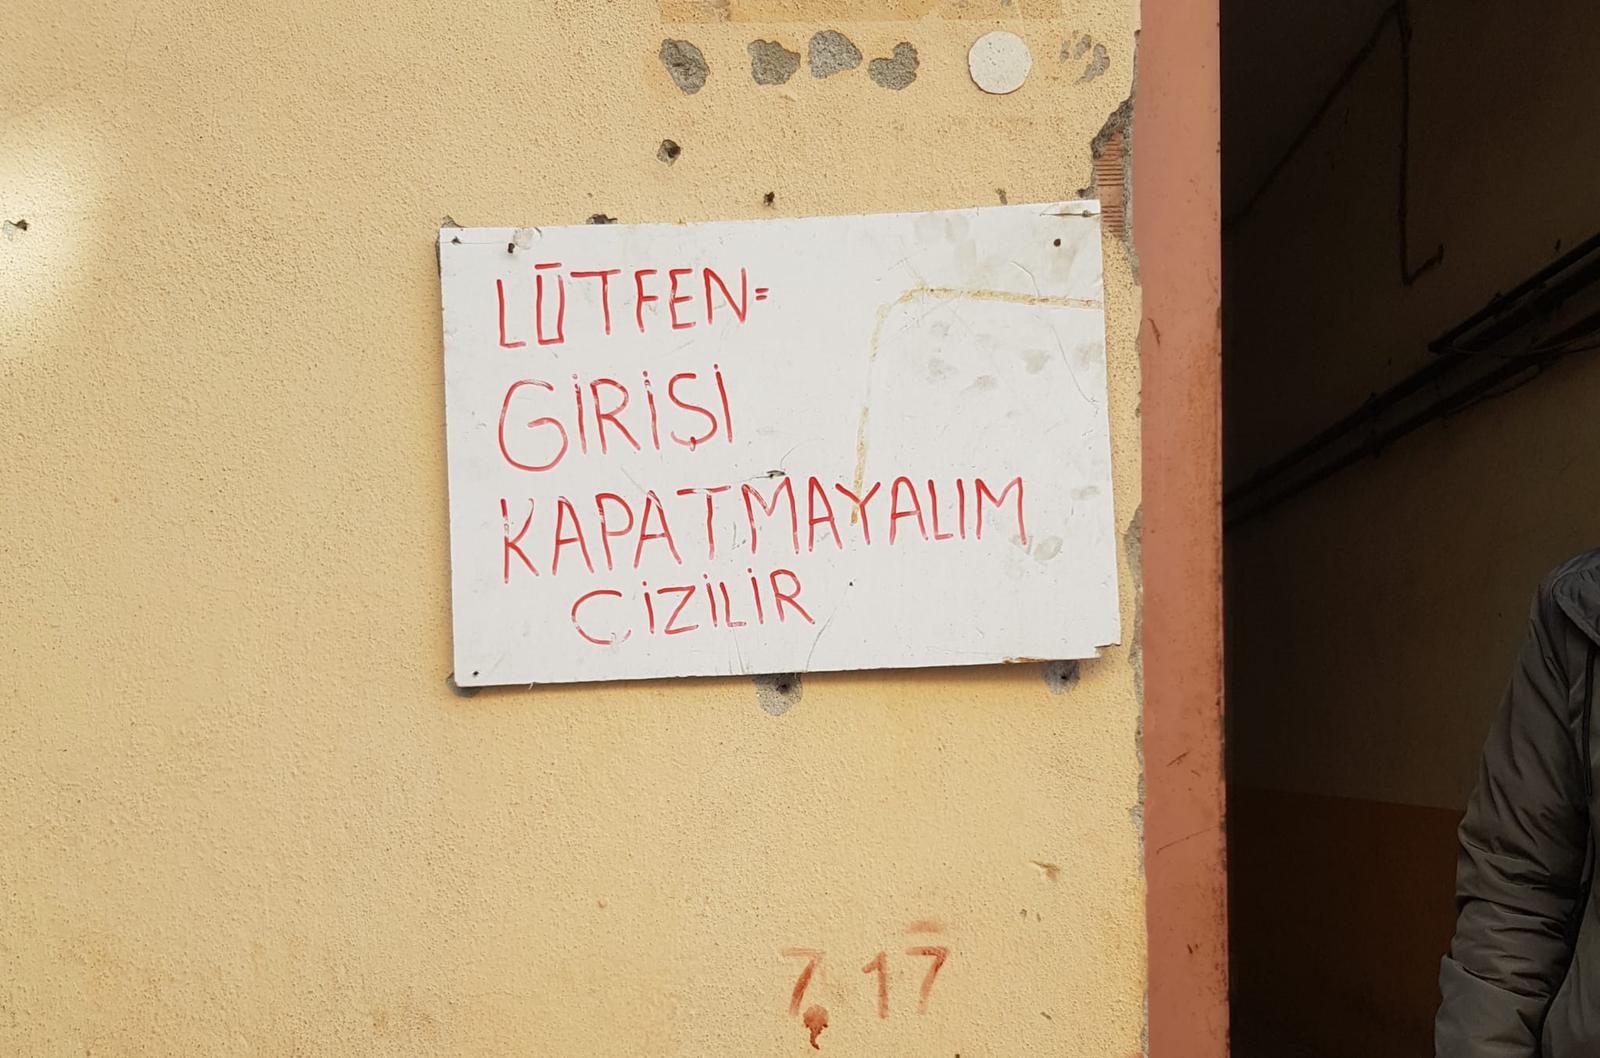 LÜTFEN=
GİRİŞİ
KAPATMAYALIM
CİZİLİR
7,17